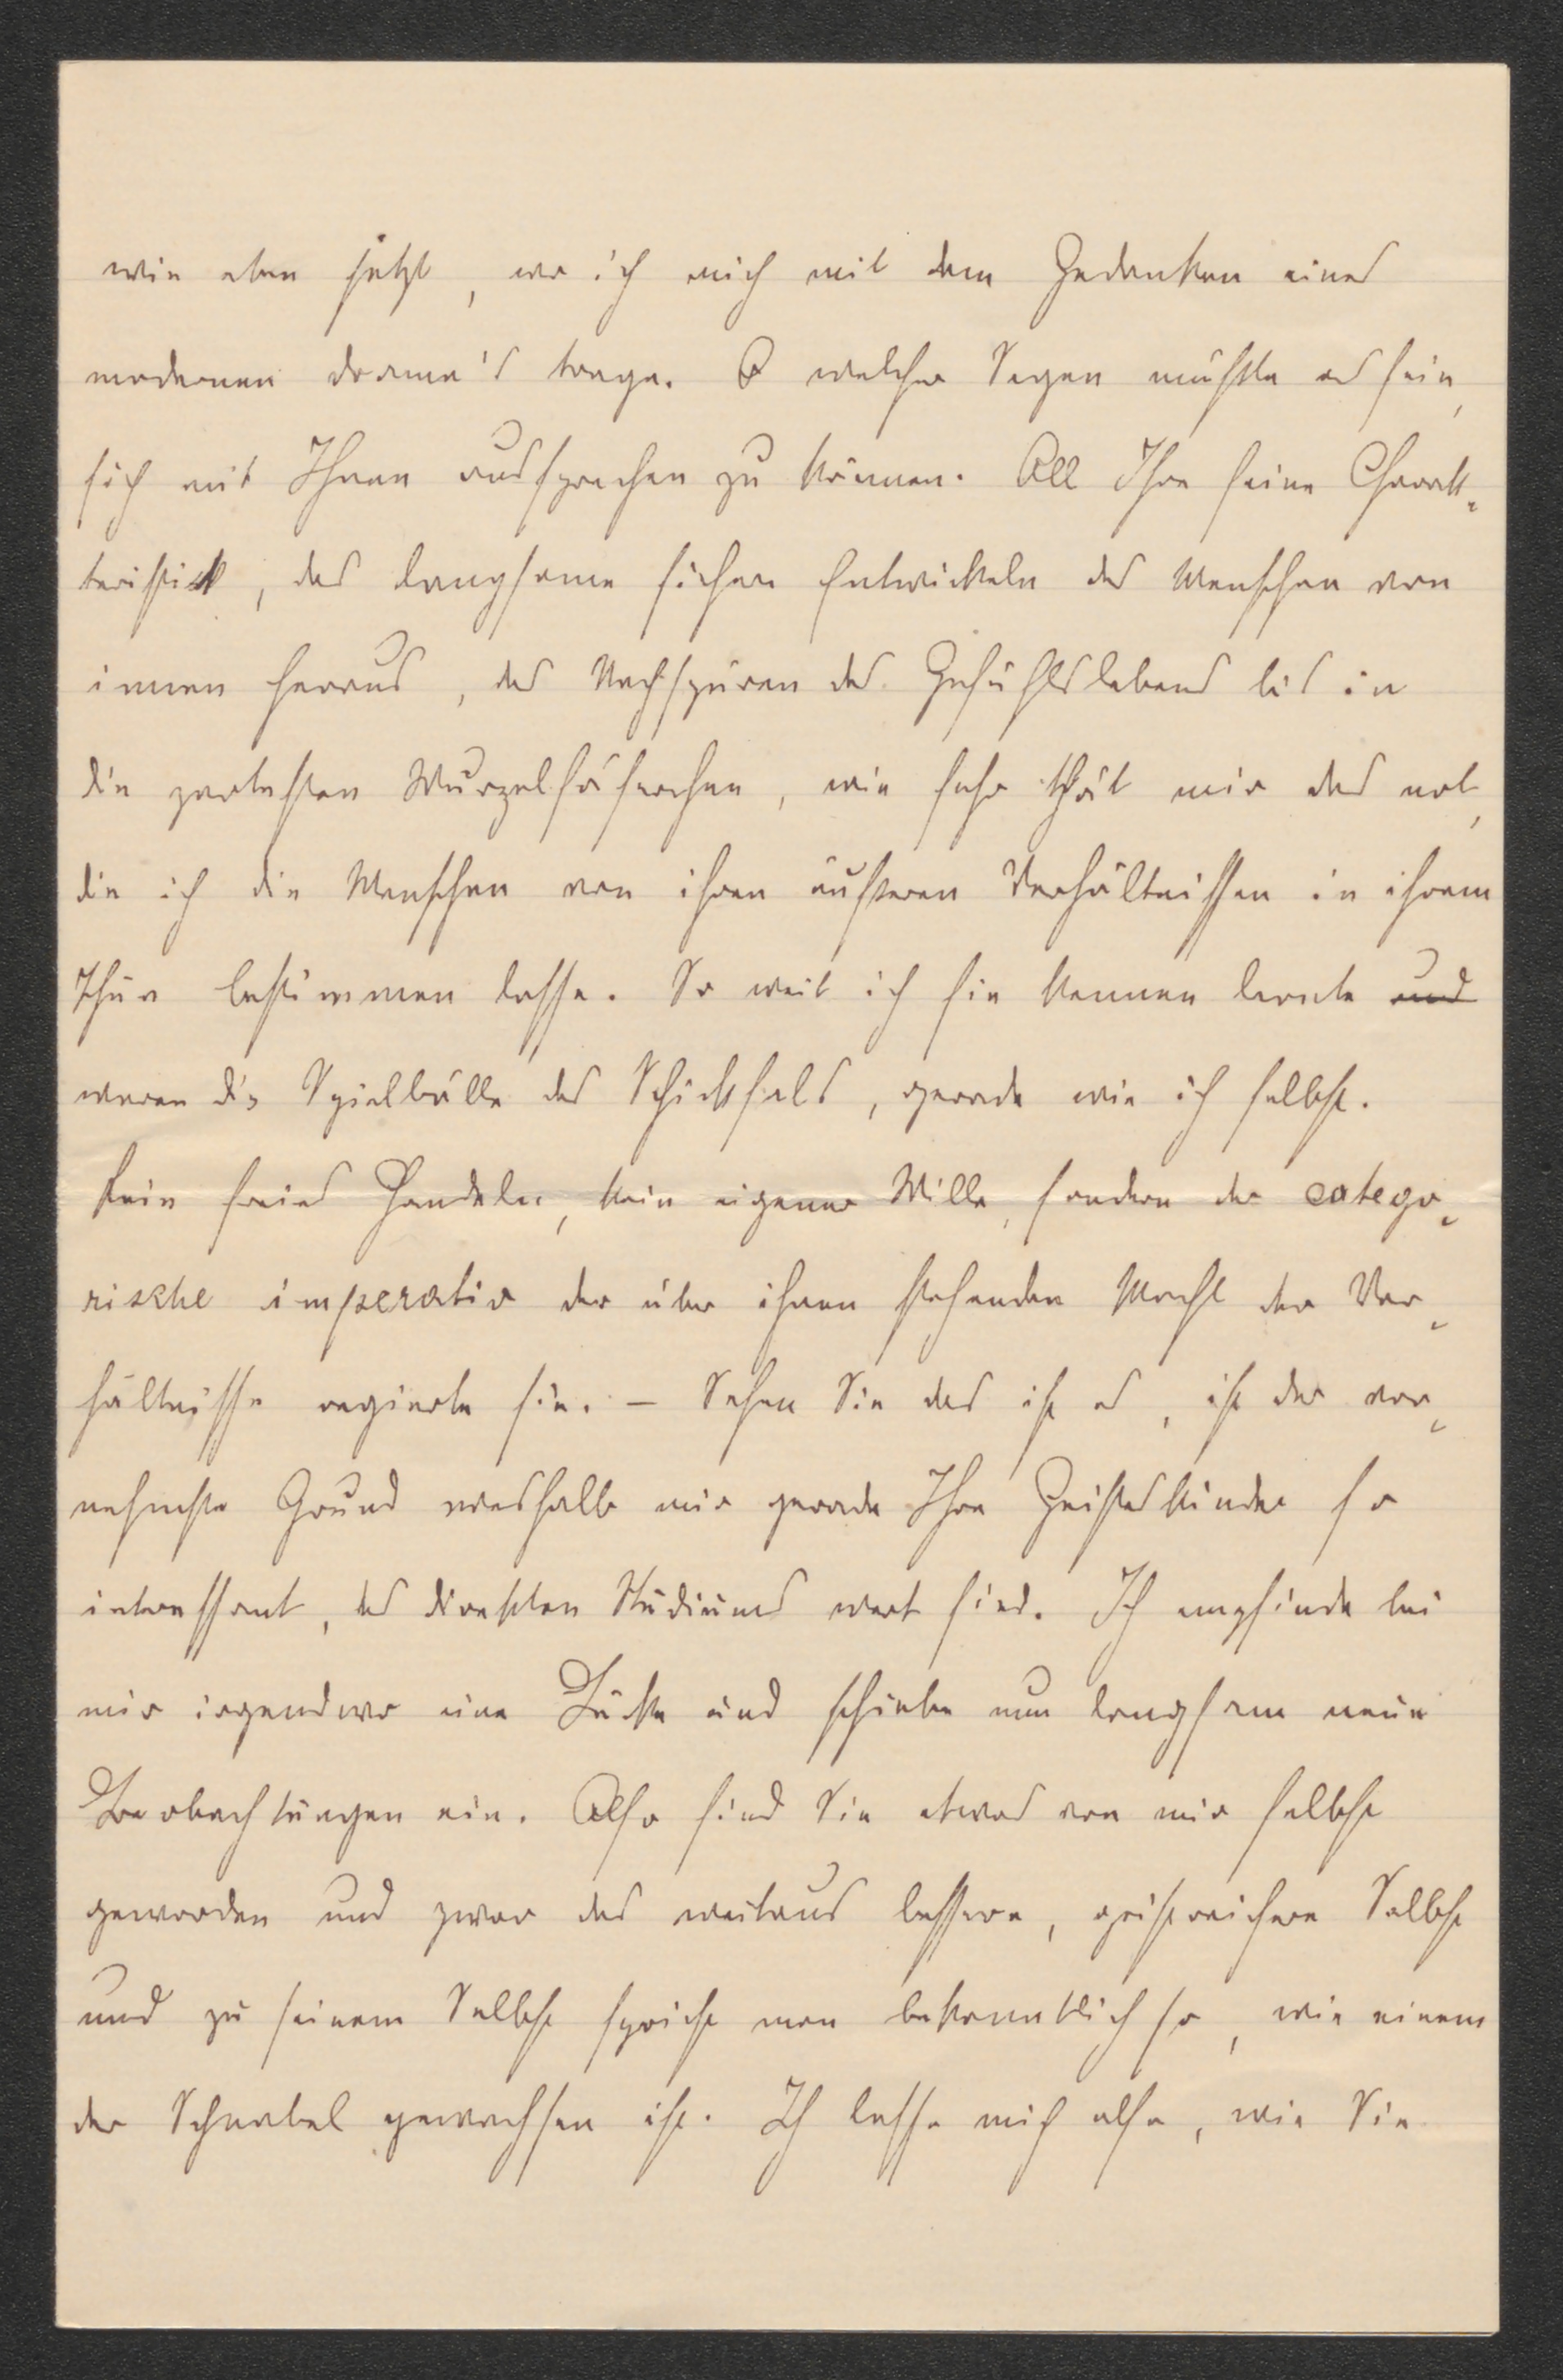 wie eben jetzt, wo ich mich mit dem Gedanken eines
modernen drama's trage. O welcher Segen müßte es sein,
sich mit Ihnen aussprechen zu können. All Ihre feine Charak-
teristik, das langsame sichere Entwickeln des Menschen von
innen heraus, das Nachspüren des Gefühlslebens bis in
die zartesten Wurzelfäserchen, wie sehr thät mir das not,
die ich die Menschen von ihren äußeren Verhältnissen in ihrem
Thun bestimmen lasse. So weit ich sie kennen lernte und
waren die Spielbälle des Schicksals, gerade wie ich selbst.
Kein freies Handeln, kein eigener Wille, sondern der catego-
rische imperativ der über ihnen stehenden Macht der Ver-
hältnisse regierte sie. – Sehen Sie das ist es, ist der vor-
nehmste Grund weshalb mir gerade Ihre Geisteskinder so
interessant, des direkten Studiums wert sind. Ich empfinde bei
mir irgendwo eine Lücke und schiebe nun langsam neue
Beobachtungen ein. Also sind Sie etwas von mir selbst
geworden und zwar das weitaus bessere, geistreichere Selbst
und zu seinem Selbst spricht man bekanntlich so, wie einem
der Schnabel gewachsen ist. Ich lasse mich also, wie Sie